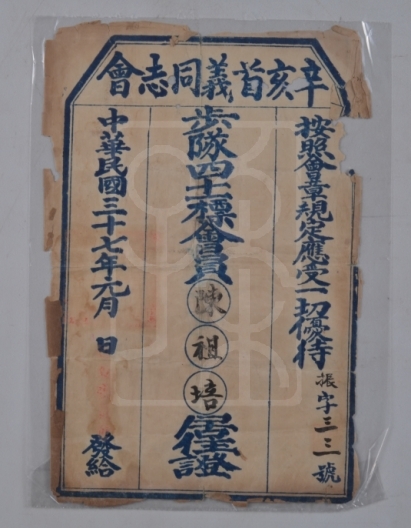 辛亥首義同志會
按照會章規定應受一切優待
振字三三號
步隊四十一標會員陳祖培居住證
中華民國三十七年元月 日
發給